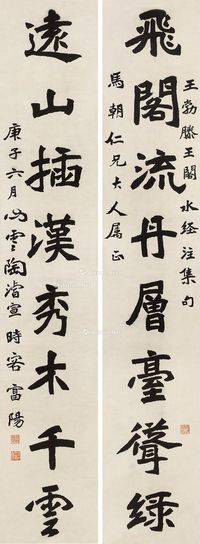 王勃滕王閣 水經注集句
飛閣流丹層臺聳綠
馬朝仁兄大人属正
遠山插漢秀木千雲
庚子六月心雲陶濬宣時客富陽